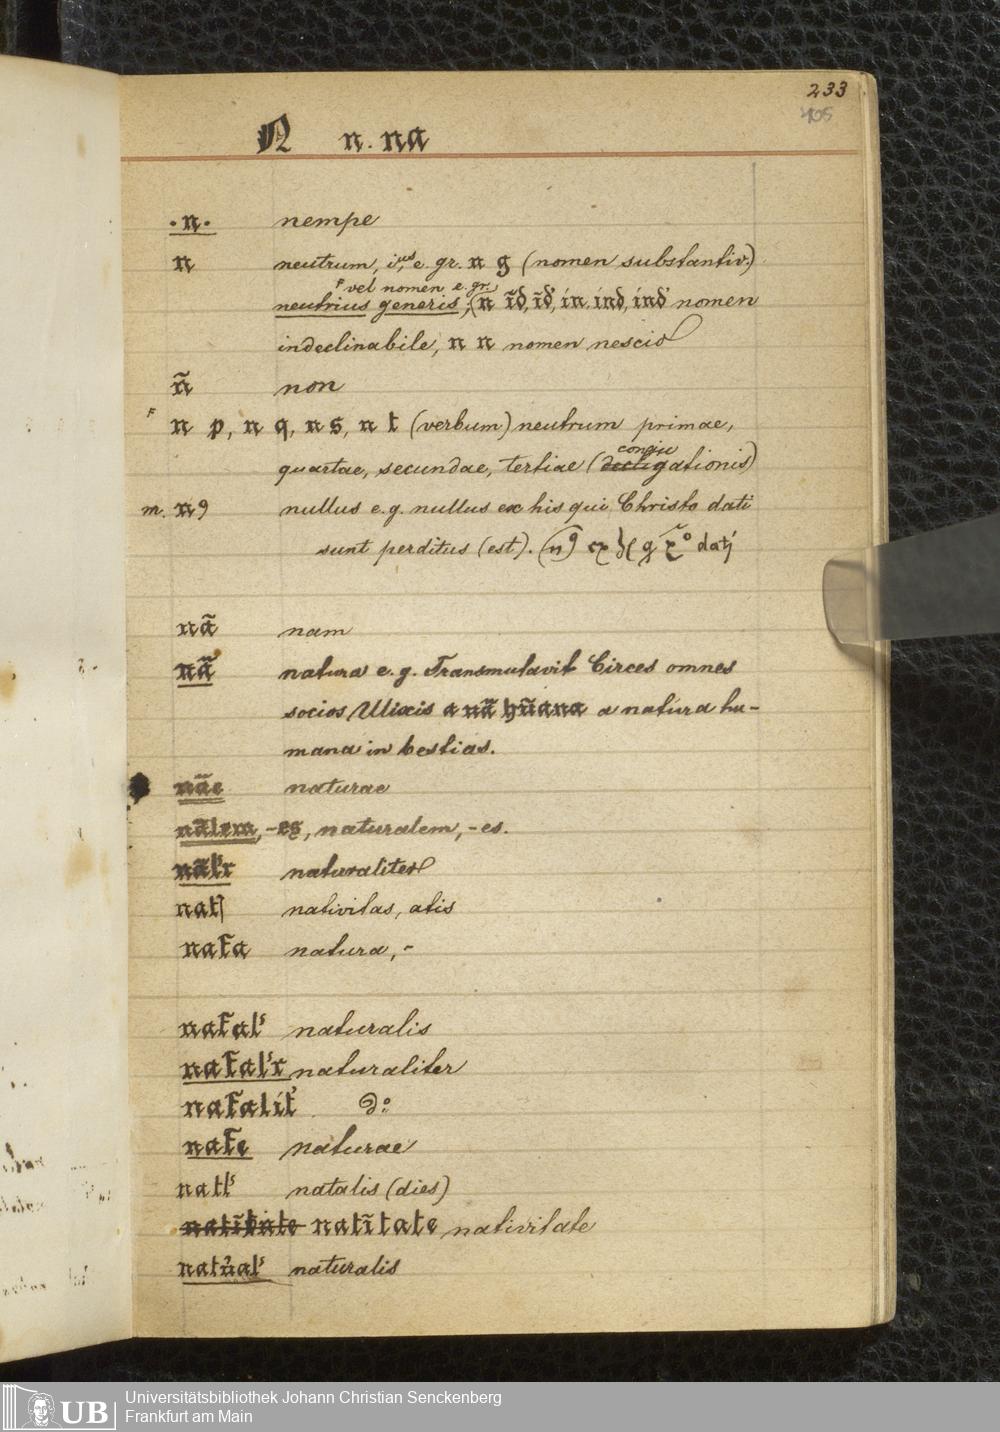 233
405
N n. na
·n· nempe
n neutrum, ius, e. gr. n g (nomen substantiv.)
F vel nomen e. gr.
neutrius generis, (n ĩd, ĩd', ín. índ, índ' nomen
indeclinabile, n n nomen nescio
ñ non
F n p, n q, n s, n t (verbum) neutrum primae,
conju
quartae, secundae, tertiae (decligationis)
m. n9 nullus e.g. nullus ex his qui Christo dati
sunt perditus (est). datj
nã nam
nã natura e. g. Transmutavit Circes omnes
socios Ulixis a nã hũana a natura hu-
mana in bestias.
nãe naturae
nãlem, -es, naturalem, -es.
nãlr naturaliter
nat nativitas, atis
nata natura, -
natals naturalis
natalsr naturaliter
natalit' do:
nate naturae
natls natalis (dies)
natĩtate natĩtate nativitate
natũals naturalis
UB Universitätsbibliothek Johann Christian Senckenberg
Frankfurt am Main